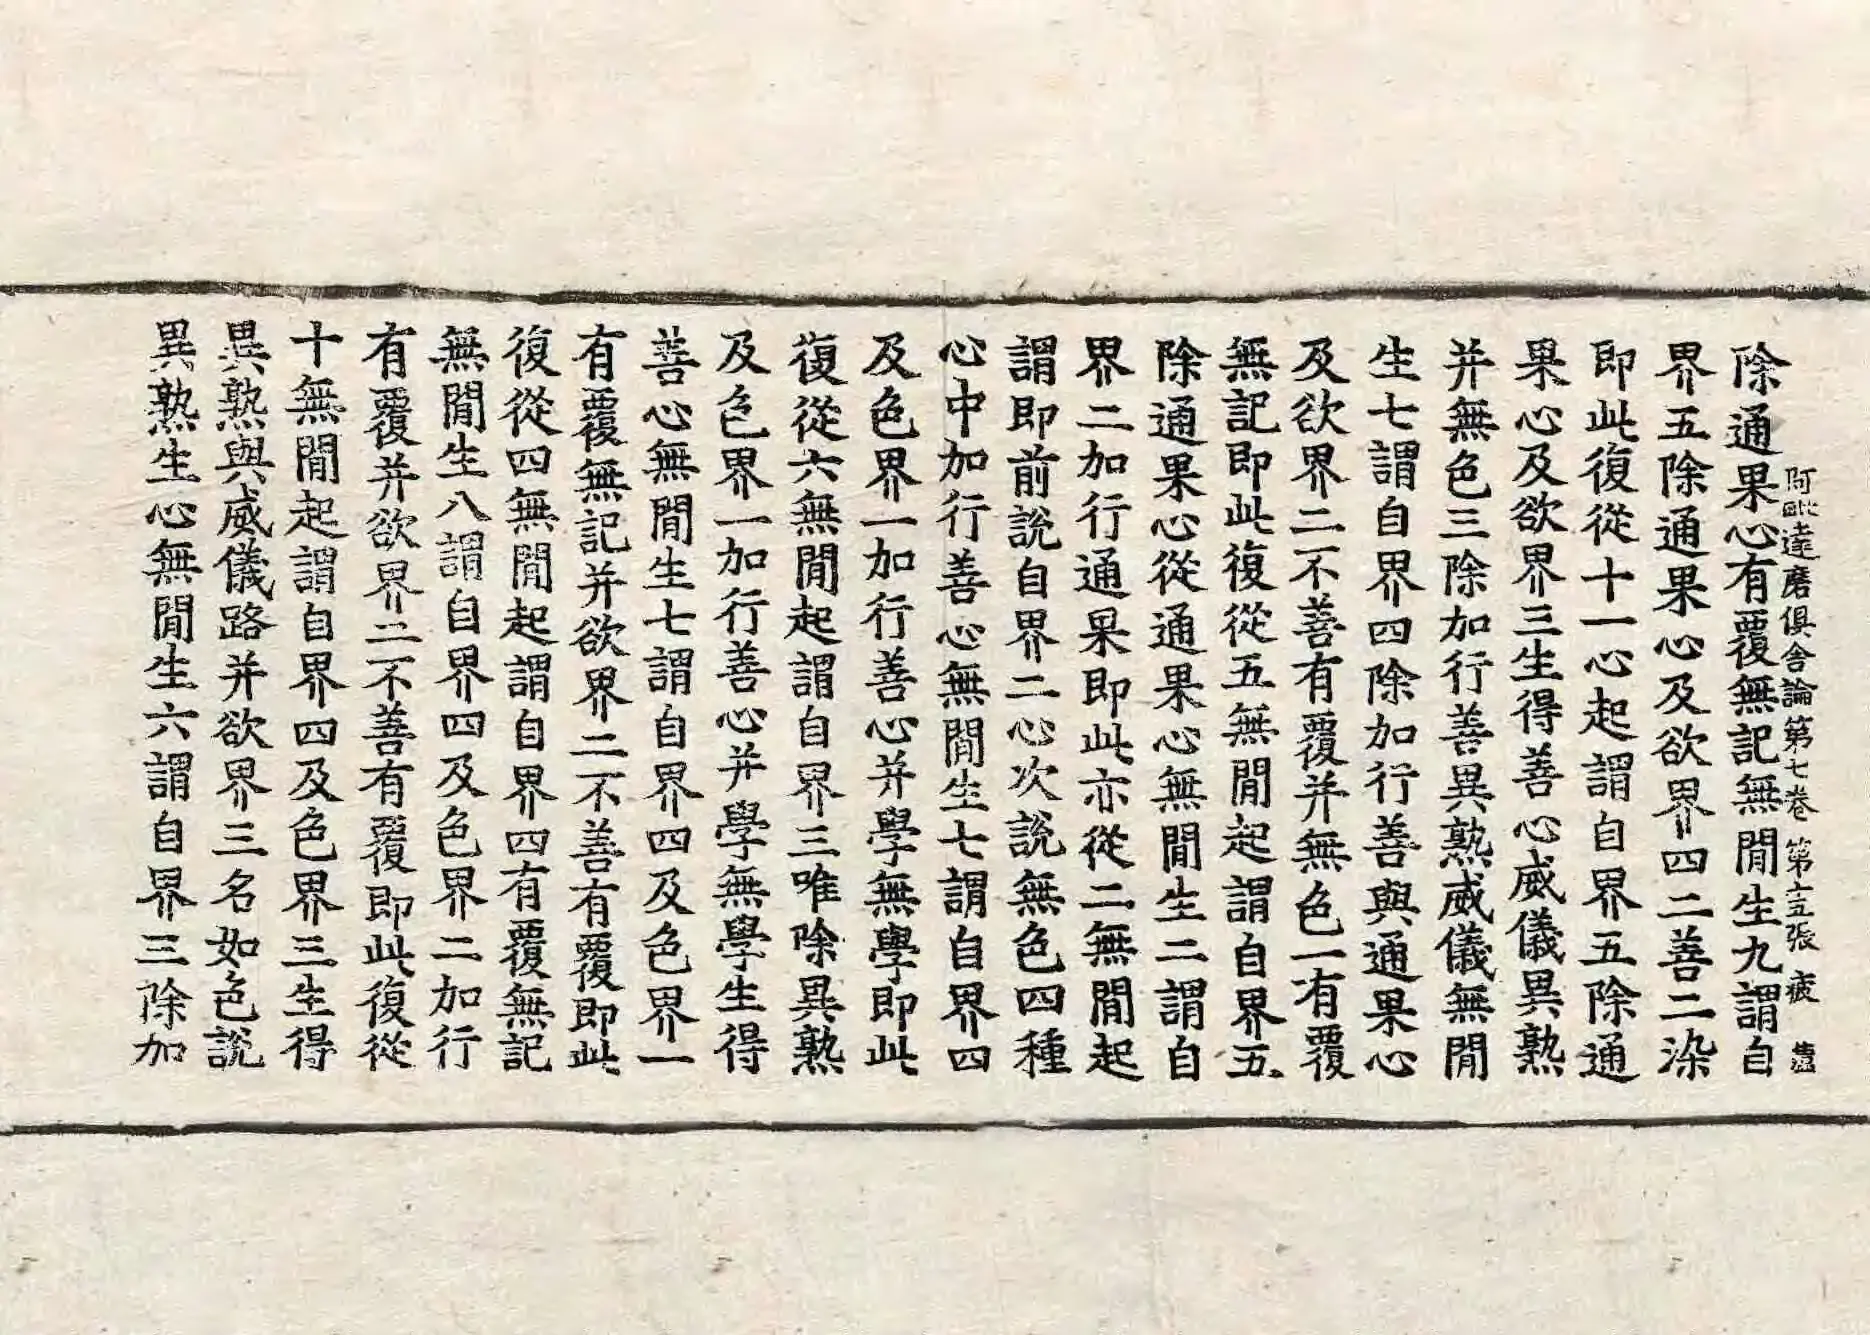 阿毗達磨俱舍論第七卷 第十五張 疲
除通果心有覆無記無間生九謂自
界五除通果心及欲界四二善二染
即此復從十一心起謂自界五除通
果心及欲界三生得善心威儀異熟
并無色三除加行善異熟威儀無間
生七謂自界四除加行善與通果心
及欲界二不善有覆并無色一有覆
無記即此復從五無間起謂自界五
除通果心從通果心無間生二謂自
界二加行通果即此亦從二無間起
謂即前說自界二心次說無色四種
心中加行善心無間生七謂自界四
及色界一加行善心并學無學即此
復從六無間起謂自界三唯除異熟
及色界一加行善心并學無學生得
善心無間生七謂自界四及色界一
有覆無記并欲界二不善有覆即此
復從四無間起謂自界四有覆無記
無間生八謂自界四及色界二加行
有覆并欲界二不善有覆即此復從
十無間起謂自界四及色界三生得
異熟與威儀路并欲界三名如色說
異熟生心無間生六謂自界三除加